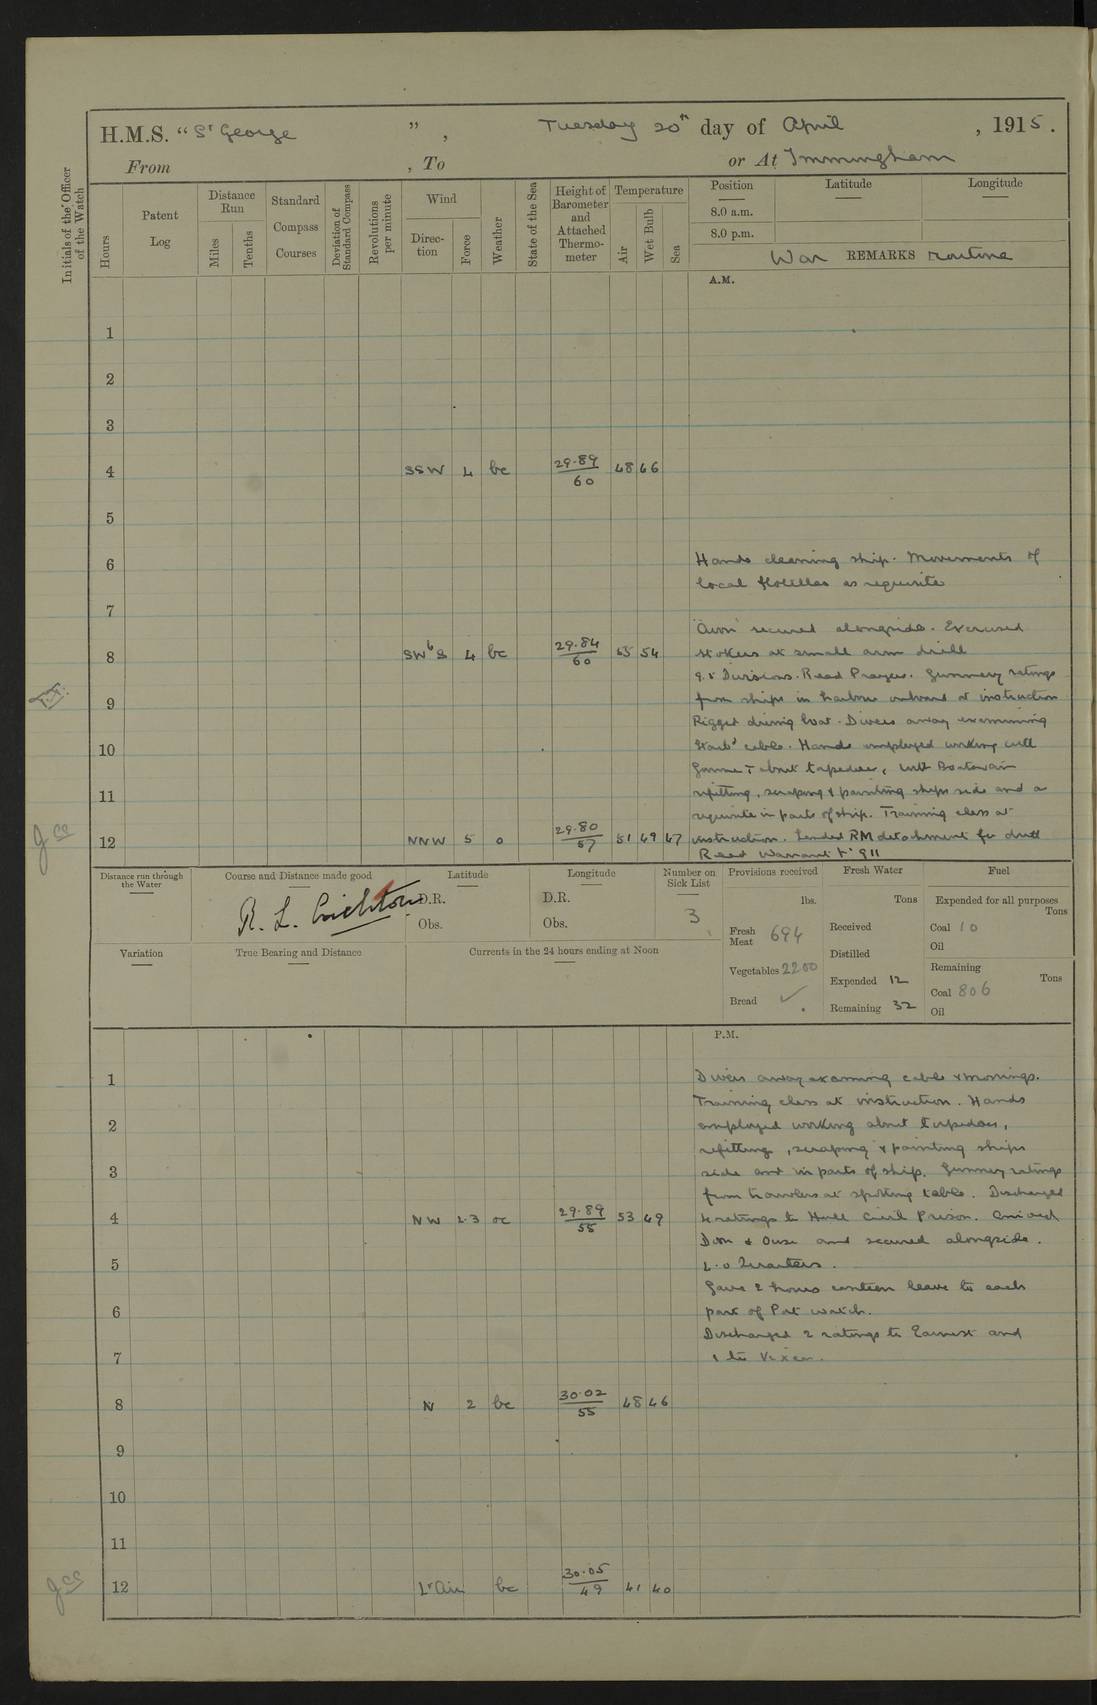 H.M.S. "St George", Tuesday 20th day of April, 1915.
From , To or At Immingham
Initials of the Officer of the Watch
Hours
Patent Log
Distance Run
Miles
Tenths
Standard Compass Courses
Deviation of Standard Compass
Revolutions per minute
Wind
Direction
Force
Weather
State of the Sea
Height of Barometer and Attached Thermometer
Temperature
Air
Wet Bulb
Sea
Position Latitude Longitude
8.0 a.m.
8.0 p.m.
War REMARKS routine
A.M.
1
2
3
4 SSW 4 bc 29.89/60 48 46
5
6 Hands cleaning ship. Movements of
local flotillas as requisite
7
'Avon' secured alongside. Exercised
8 SWbS 4 bc 29.84/60 55 54 stokers at small arm drill
9.5 Divisions. Read Prayers. Gunnery ratings
9 from ships in harbour onboard at instruction
Rigged diving boat. Divers away examining
10 Starbd cable. Hands employed working with
Gunner T about torpedoes, with Boatswain
11 refitting, scraping & painting ships side and as
requisite in parts of ship. Training class at
12 NNW 5 o 29.80/57 51 49 47 instruction. Landed RM detachment for drill
Read Warrant No 911
Distance run through the Water
Course and Distance made good
R. L. Crichton
Latitude
D.R.
Obs.
Longitude
D.R.
Obs.
Number on Sick List
3
Provisions received
lbs.
Fresh Meat 694
Vegetables 2200
Bread ✓
Fresh Water
Tons
Received
Distilled
Expended 12
Remaining 32
Fuel
Expended for all purposes
Tons
Coal 10
Oil
Remaining
Tons
Coal 806
Oil
Variation
True Bearing and Distance
Currents in the 24 hours ending at Noon
P.M.
1 Divers away examining cable & moorings.
Training class at instruction. Hands
2 employed working about torpedoes,
refitting, scraping & painting ships
3 side and in parts of ship. Gunnery ratings
from trawlers at spotting table. Discharged
4 NW 2.3 oc 29.89/55 53 49 4 ratings to Hull Civil Prison. Arrived
Don & Ouse and secured alongside.
5 4.0 Quarters.
Gave 2 hours canteen leave to each
6 part of Port watch.
Discharged 2 ratings to Earnest and
7 1 to Vixen.
8 N 2 bc 30.02/55 48 46
9
10
11
12 Lt Air bc 30.05/49 41 40